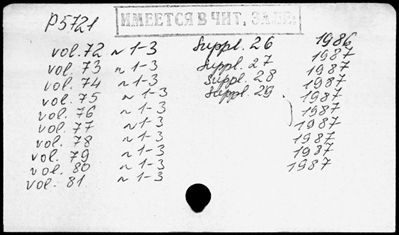 P5721 ИМЕЕТСЯ В ЧИТ. ЗАЛЕ
vol. 72 N 1-3 Suppl. 26 1986
vol. 73 N 1-3 Suppl. 27 1987
vol. 74 N 1-3 Suppl. 28 1987
vol. 75 N 1-3 Suppl. 29. 1987
vol. 76 N 1-3 1987
vol. 77 N 1-3 1987
vol. 78 N 1-3 1987
vol. 79 N 1-3 1987
vol. 80 N 1-3 1987
vol. 81 N 1-3 1987